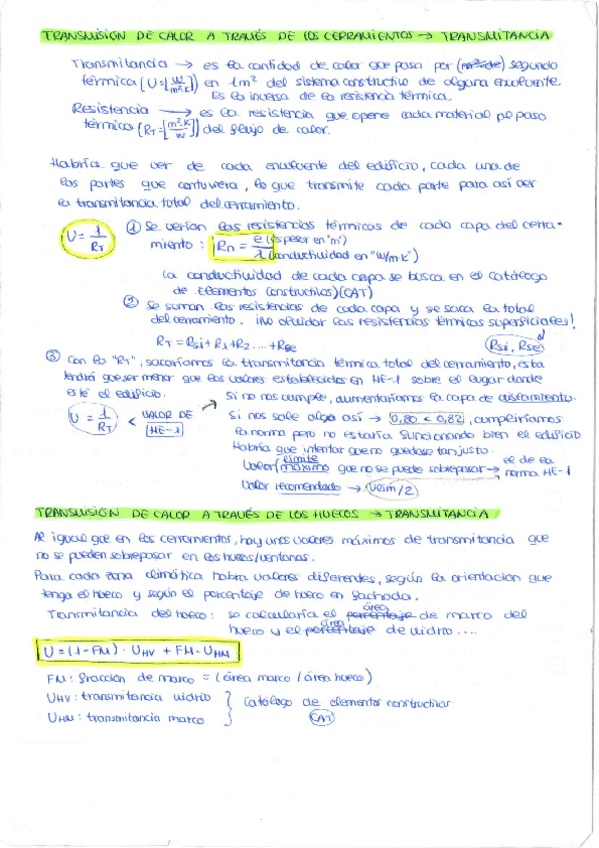 TRANSMISIÓN DE CALOR A TRAVÉS DE LOS CERRAMIENTOS → TRANSMITANCIA
Transmitancia → es la cantidad de calor que pasa por (m² de) segundo
térmica (U=[W/m²·K]) en 1m² del sistema constructivo de alguna envolvente.
Es la inversa de la resistencia térmica.
Resistencia → es la resistencia que opone cada material al paso
térmica (RT=[m²·K/W]) del flujo de calor.
Habría que ver de cada envolvente del edificio, cada una de
las partes que contuviera, lo que transmite cada parte para así ver
la transmitancia total del cerramiento.
U = 1/RT
① Se verían las resistencias térmicas de cada capa del cerra-
miento: Rn = e (espesor en "m") / λ (conductividad en "W/m·k")
La conductividad de cada capa se busca en el catálogo
de Elementos Constructivos) (CAT)
② Se suman las resistencias de cada capa y se saca la total
del cerramiento. ¡No olvidar las resistencias térmicas superficiales!
RT = Rsi + R1 + R2 .... + Rse (Rsi, Rse)
③ Con la "RT", sacaríamos la transmitancia térmica total del cerramiento, esta
tendrá que ser menor que los valores establecidos en HE-1 sobre el lugar donde
esté el edificio.
U = 1/RT < VALOR DE HE-1
Si no nos cumple, aumentaríamos la capa de aislamiento.
Si nos sale algo así → 0,80 < 0,82, cumpliríamos
la norma pero no estaría funcionando bien el edificio
Habría que intentar que no quedase tan justo.
Valor límite/máximo que no se puede sobrepasar → el de la norma HE-1
Valor recomendado → Ulim/2
TRANSMISIÓN DE CALOR A TRAVÉS DE LOS HUECOS → TRANSMITANCIA
Al igual que en los cerramientos, hay unos valores máximos de transmitancia que
no se pueden sobrepasar en los huecos/ventanas.
Para cada zona climática habrá valores diferentes, según la orientación que
tenga el hueco y según el porcentaje de hueco en fachada.
Transmitancia del hueco: se calcularía el porcentaje área de marco del
hueco y el porcentaje área de vidrio ....
U = (1-FM) · UHV + FM · UHM
FM: fracción de marco = (área marco / área hueco)
UHV: transmitancia vidrio
UHM: transmitancia marco
Catálogo de elementos constructivos
(CAT)